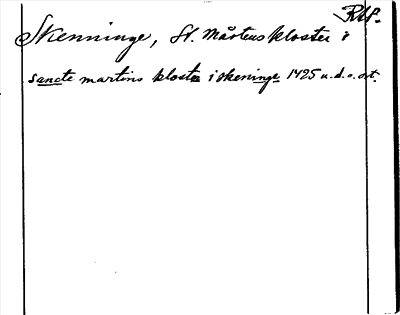 RAP.
Skenninge, St. Mårtens kloster i
sancte martins kloster i skeninge 1425 u.d.o.ort.